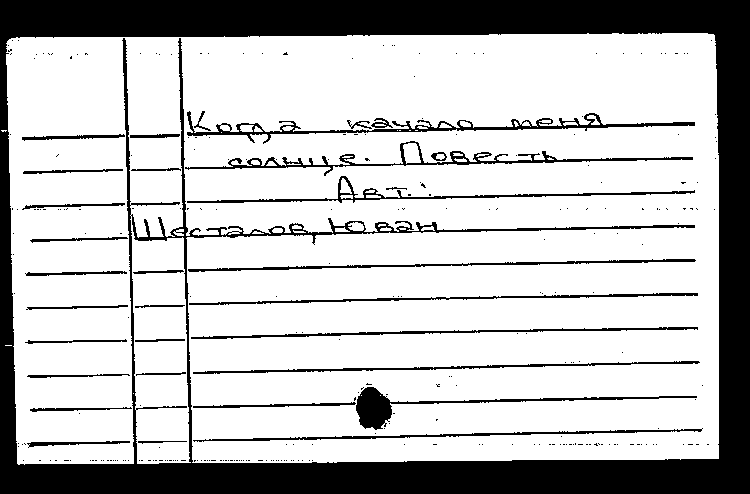 Когда качало меня
солнце. Повесть
Авт.:
Шесталов, Юван